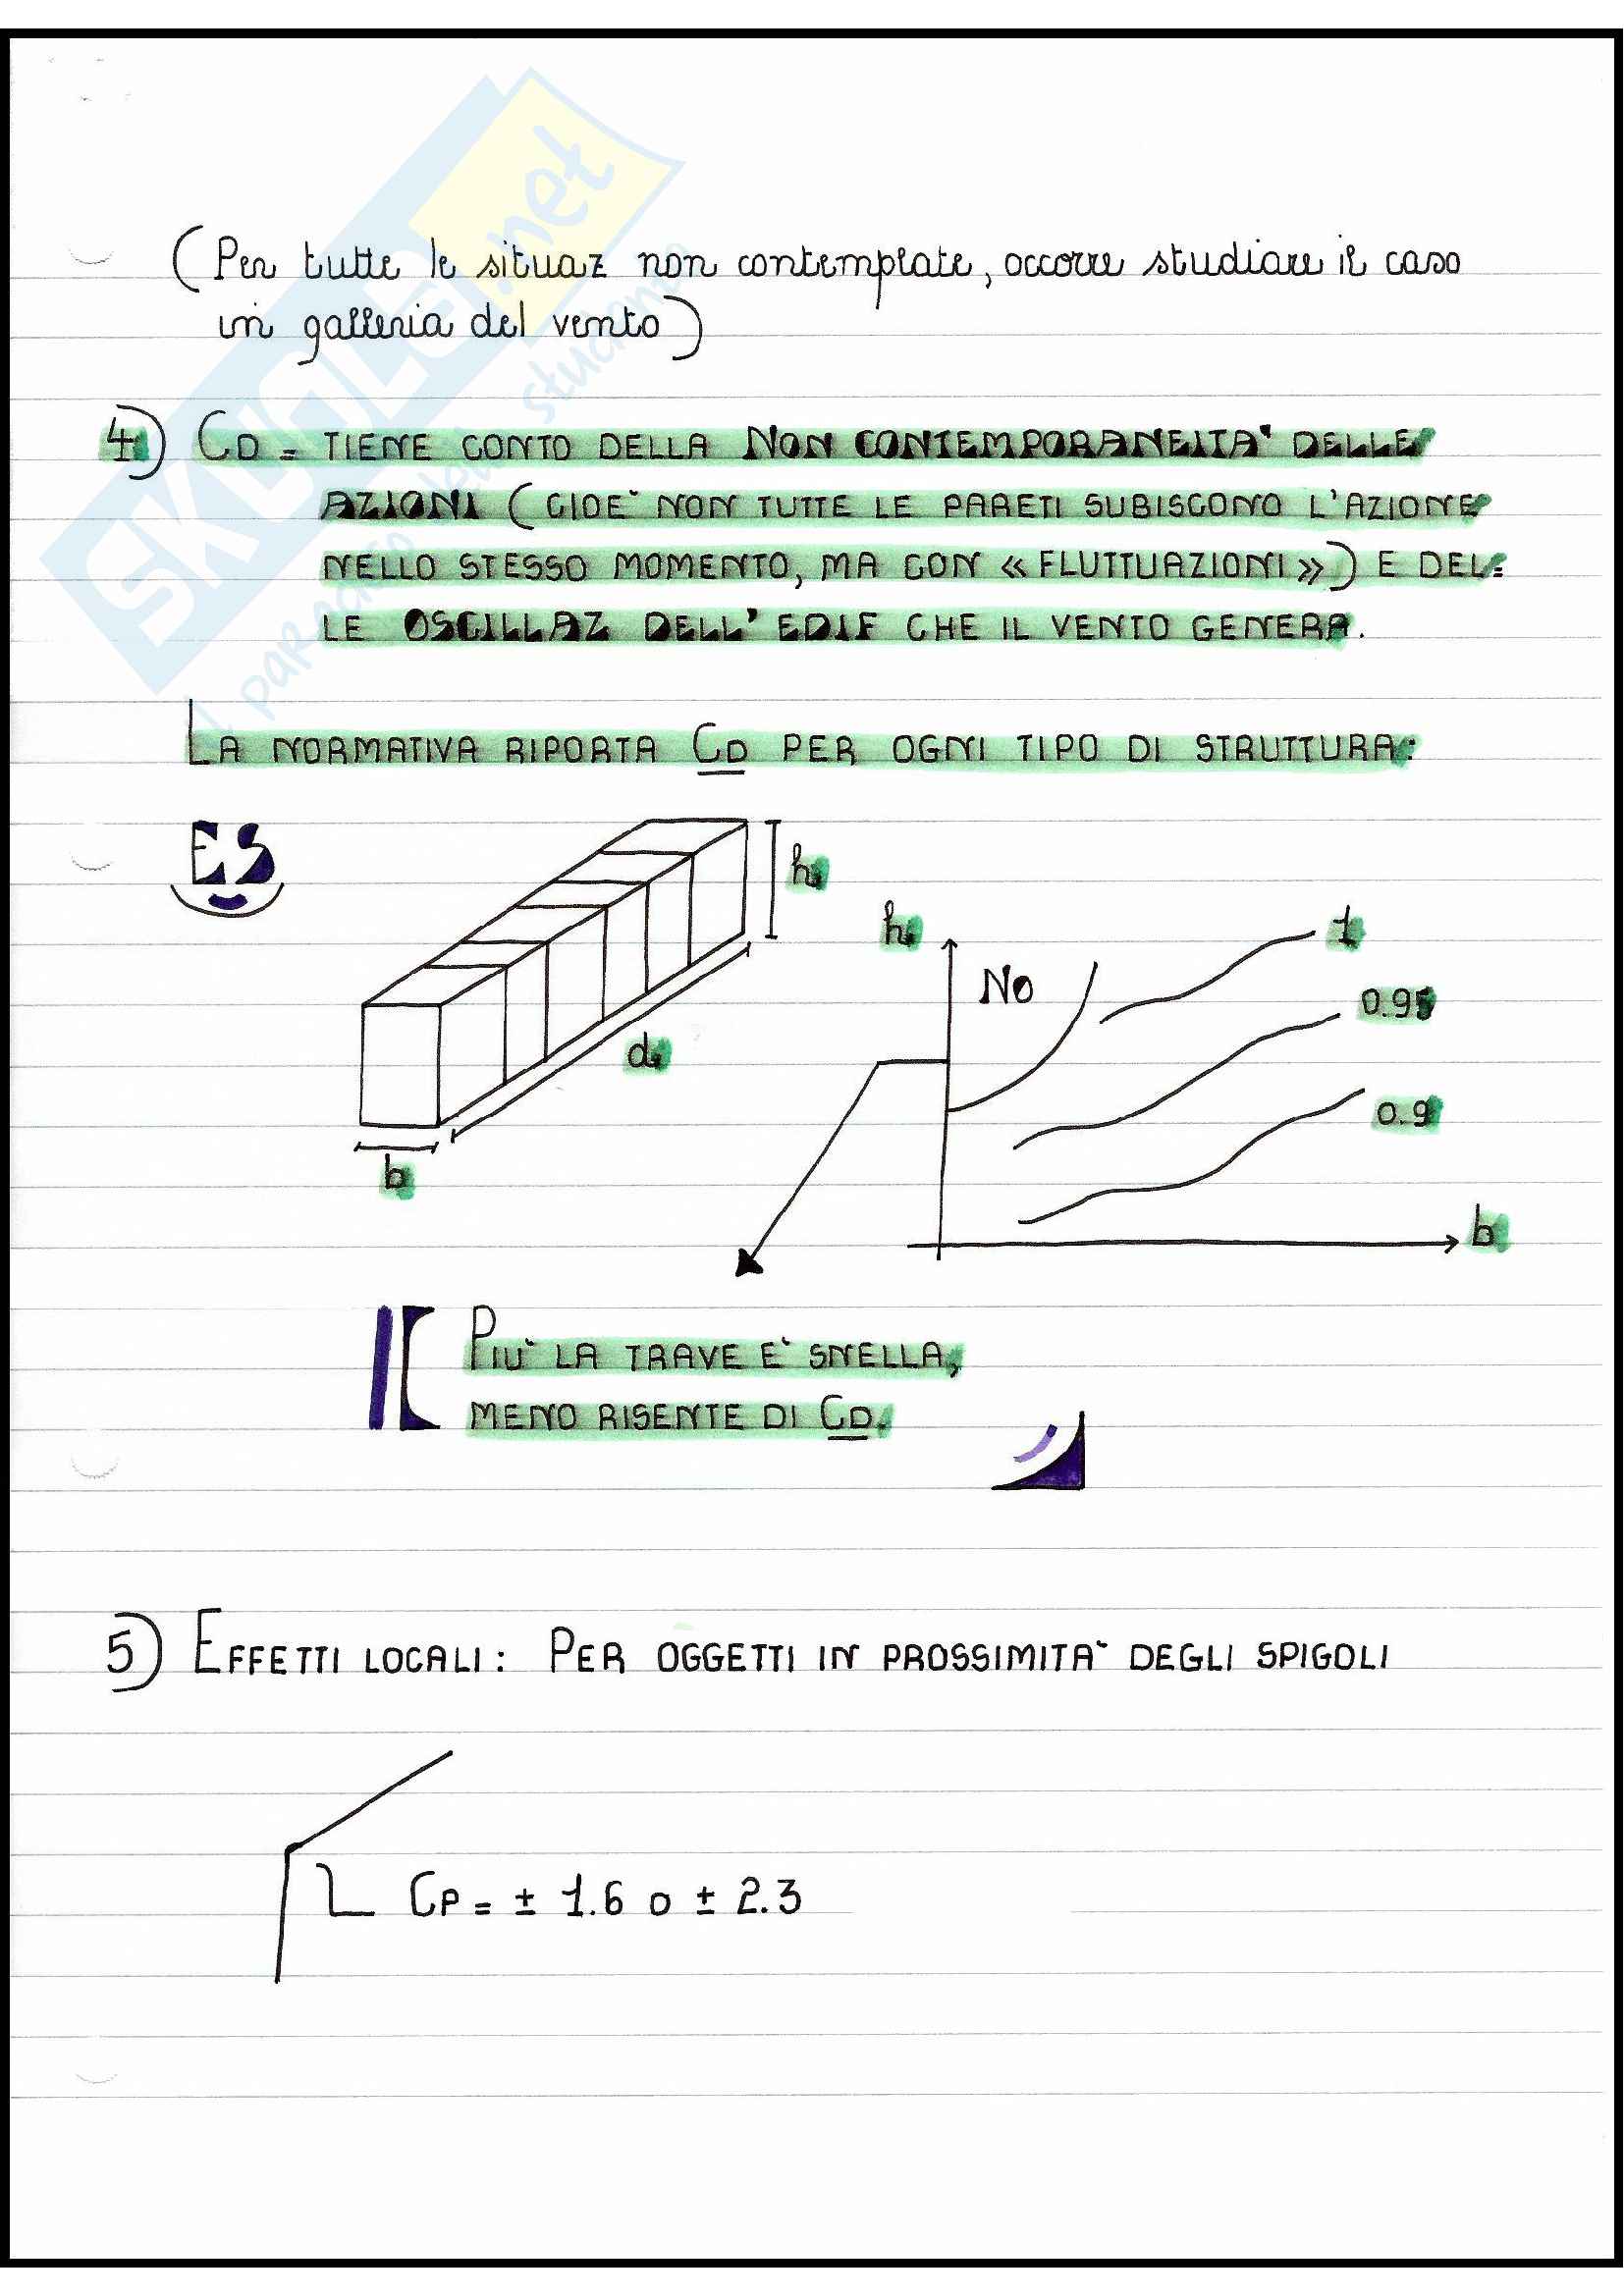 (Per tutte le situaz non contemplate, occorre studiare il caso
in galleria del vento)
4) CD = TIENE CONTO DELLA NON CONTEMPORANEITA' DELLE
AZIONI (CIOE' NON TUTTE LE PARETI SUBISCONO L'AZIONE
NELLO STESSO MOMENTO, MA CON «FLUTTUAZIONI») E DEL=
LE OSCILLAZ DELL'EDIF CHE IL VENTO GENERA.
LA NORMATIVA RIPORTA CD PER OGNI TIPO DI STRUTTURA:
ES
h
h
No
1
0.95
d
0.9
b
b
PIU' LA TRAVE E' SNELLA,
MENO RISENTE DI CD.
5) EFFETTI LOCALI: PER OGGETTI IN PROSSIMITA' DEGLI SPIGOLI
CP = ± 1.6 o ± 2.3
SKUOLA.net
il paradiso dello studente